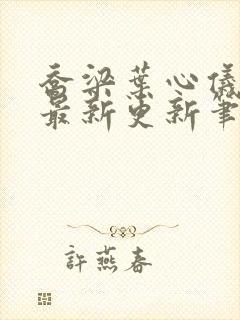 喬梁葉心儀
最新更新筆
許燕春